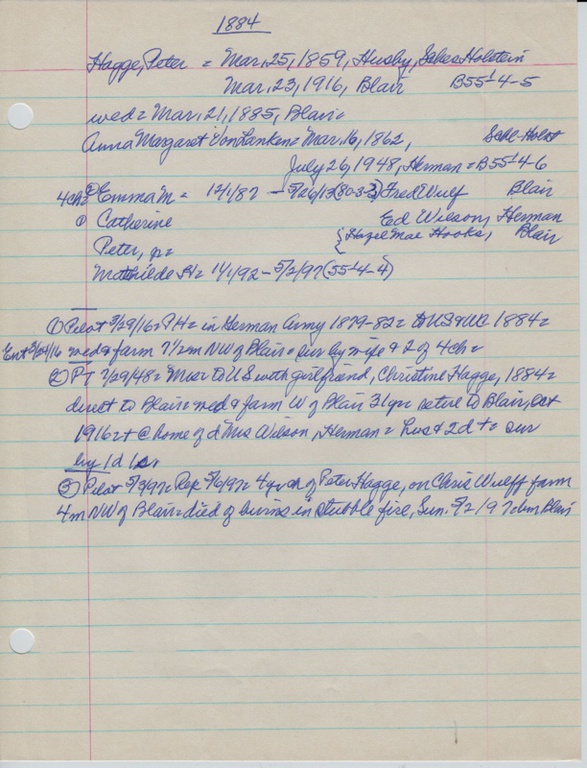 1884
Hagge, Peter = Mar. 25, 1859, Husby, Holstein
Mar. 23, 1916, Blair B55-4-5
wed = Mar. 21, 1885, Blair =
Anna Margaret Von Lanken = Mar. 16, 1862,
July 26, 1948, Herman = B55-4-6
4ch = Emma M = 12/1/87 - Fred Wulf Blair
Catherine Ed Wilson, Herman
Peter, jr = { Hazel Mae Hooks, Blair
Mathilde = 1/1/92 - 5/2/97 (55-4-4)
① Pilot 3/29/16 = in Herman Army 1879-82 = to US & WC 1884 =
Ent 3/24/16 wed & farm 7 1/2 m NW of Blair = sur by wife & 2 of 4 ch =
② PT 7/29/48 = to US with girlfriend, Christine Hagge, 1884 =
direct to Blair = wed & farm W of Blair 31 yr = retire to Blair, Oct
1916 = @ home of d Mrs Wilson, Herman = hus & 2 d = sur
by 1d
③ Pilot 5/3/97 = Rep 5/6/97 = ch of Peter Hagge, on Chris Wulff farm
4m NW of Blair = died of burns in stubble fire, Sun. 5/2/97 Blair